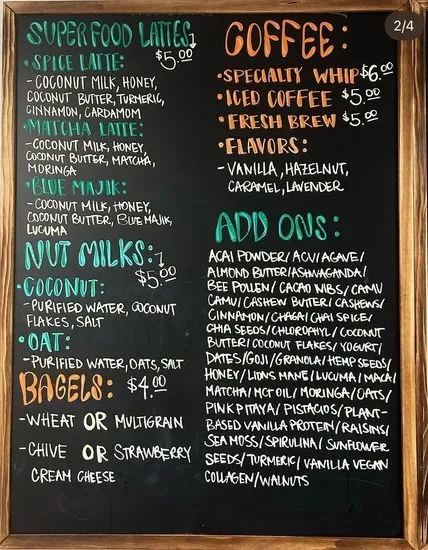 SUPERFOOD LATTES
$5.00
• SPICE LATTE:
- COCONUT MILK, HONEY,
COCONUT BUTTER, TURMERIC,
CINNAMON, CARDAMOM
• MATCHA LATTE:
- COCONUT MILK, HONEY,
COCONUT BUTTER, MATCHA,
MORINGA
• BLUE MAJIK:
- COCONUT MILK, HONEY,
COCONUT BUTTER, BLUE MAJIK,
LUCUMA
NUT MILKS:
$5.00
• COCONUT:
- PURIFIED WATER, COCONUT
FLAKES, SALT
• OAT:
- PURIFIED WATER, OATS, SALT
BAGELS: $4.00
- WHEAT OR MULTIGRAIN
- CHIVE OR STRAWBERRY
CREAM CHEESE
COFFEE:
2/4
• SPECIALTY WHIP $6.00
• ICED COFFEE $5.00
• FRESH BREW $5.00
• FLAVORS:
- VANILLA, HAZELNUT,
CARAMEL, LAVENDER
ADD ONS:
ACAI POWDER/ACV/AGAVE/
ALMOND BUTTER/ASHWAGANDA/
BEE POLLEN/CACAO NIBS/CAMU
CAMU/CASHEW BUTTER/CASHEWS/
CINNAMON/CHAGA/CHAI SPICE/
CHIA SEEDS/CHLOROPHYL/COCONUT
BUTTER/COCONUT FLAKES/YOGURT/
DATES/GOJI/GRANOLA/HEMP SEEDS/
HONEY/LIONS MANE/LUCUMA/MACA/
MATCHA/MCT OIL/MORINGA/OATS/
PINK PITAYA/PISTACIOS/PLANT-
BASED VANILLA PROTEIN/RAISINS/
SEA MOSS/SPIRULINA/SUNFLOWER
SEEDS/TURMERIC/VANILLA VEGAN
COLLAGEN/WALNUTS